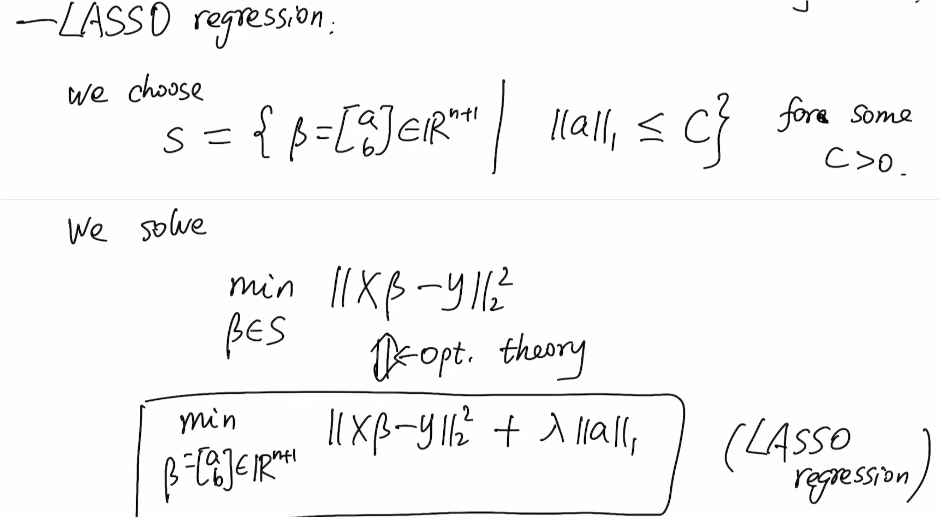 —LASSO regression.
we choose
S = { β = [a b] ∈ ℝⁿ⁺¹ | ||a||₁ ≤ C } for some
C>0.
We solve
min ||Xβ − y||₂²
β∈S
⇕ ← opt. theory
min ||Xβ − y||₂² + λ ||a||₁
β = [a b] ∈ ℝⁿ⁺¹
(LASSO
regression)